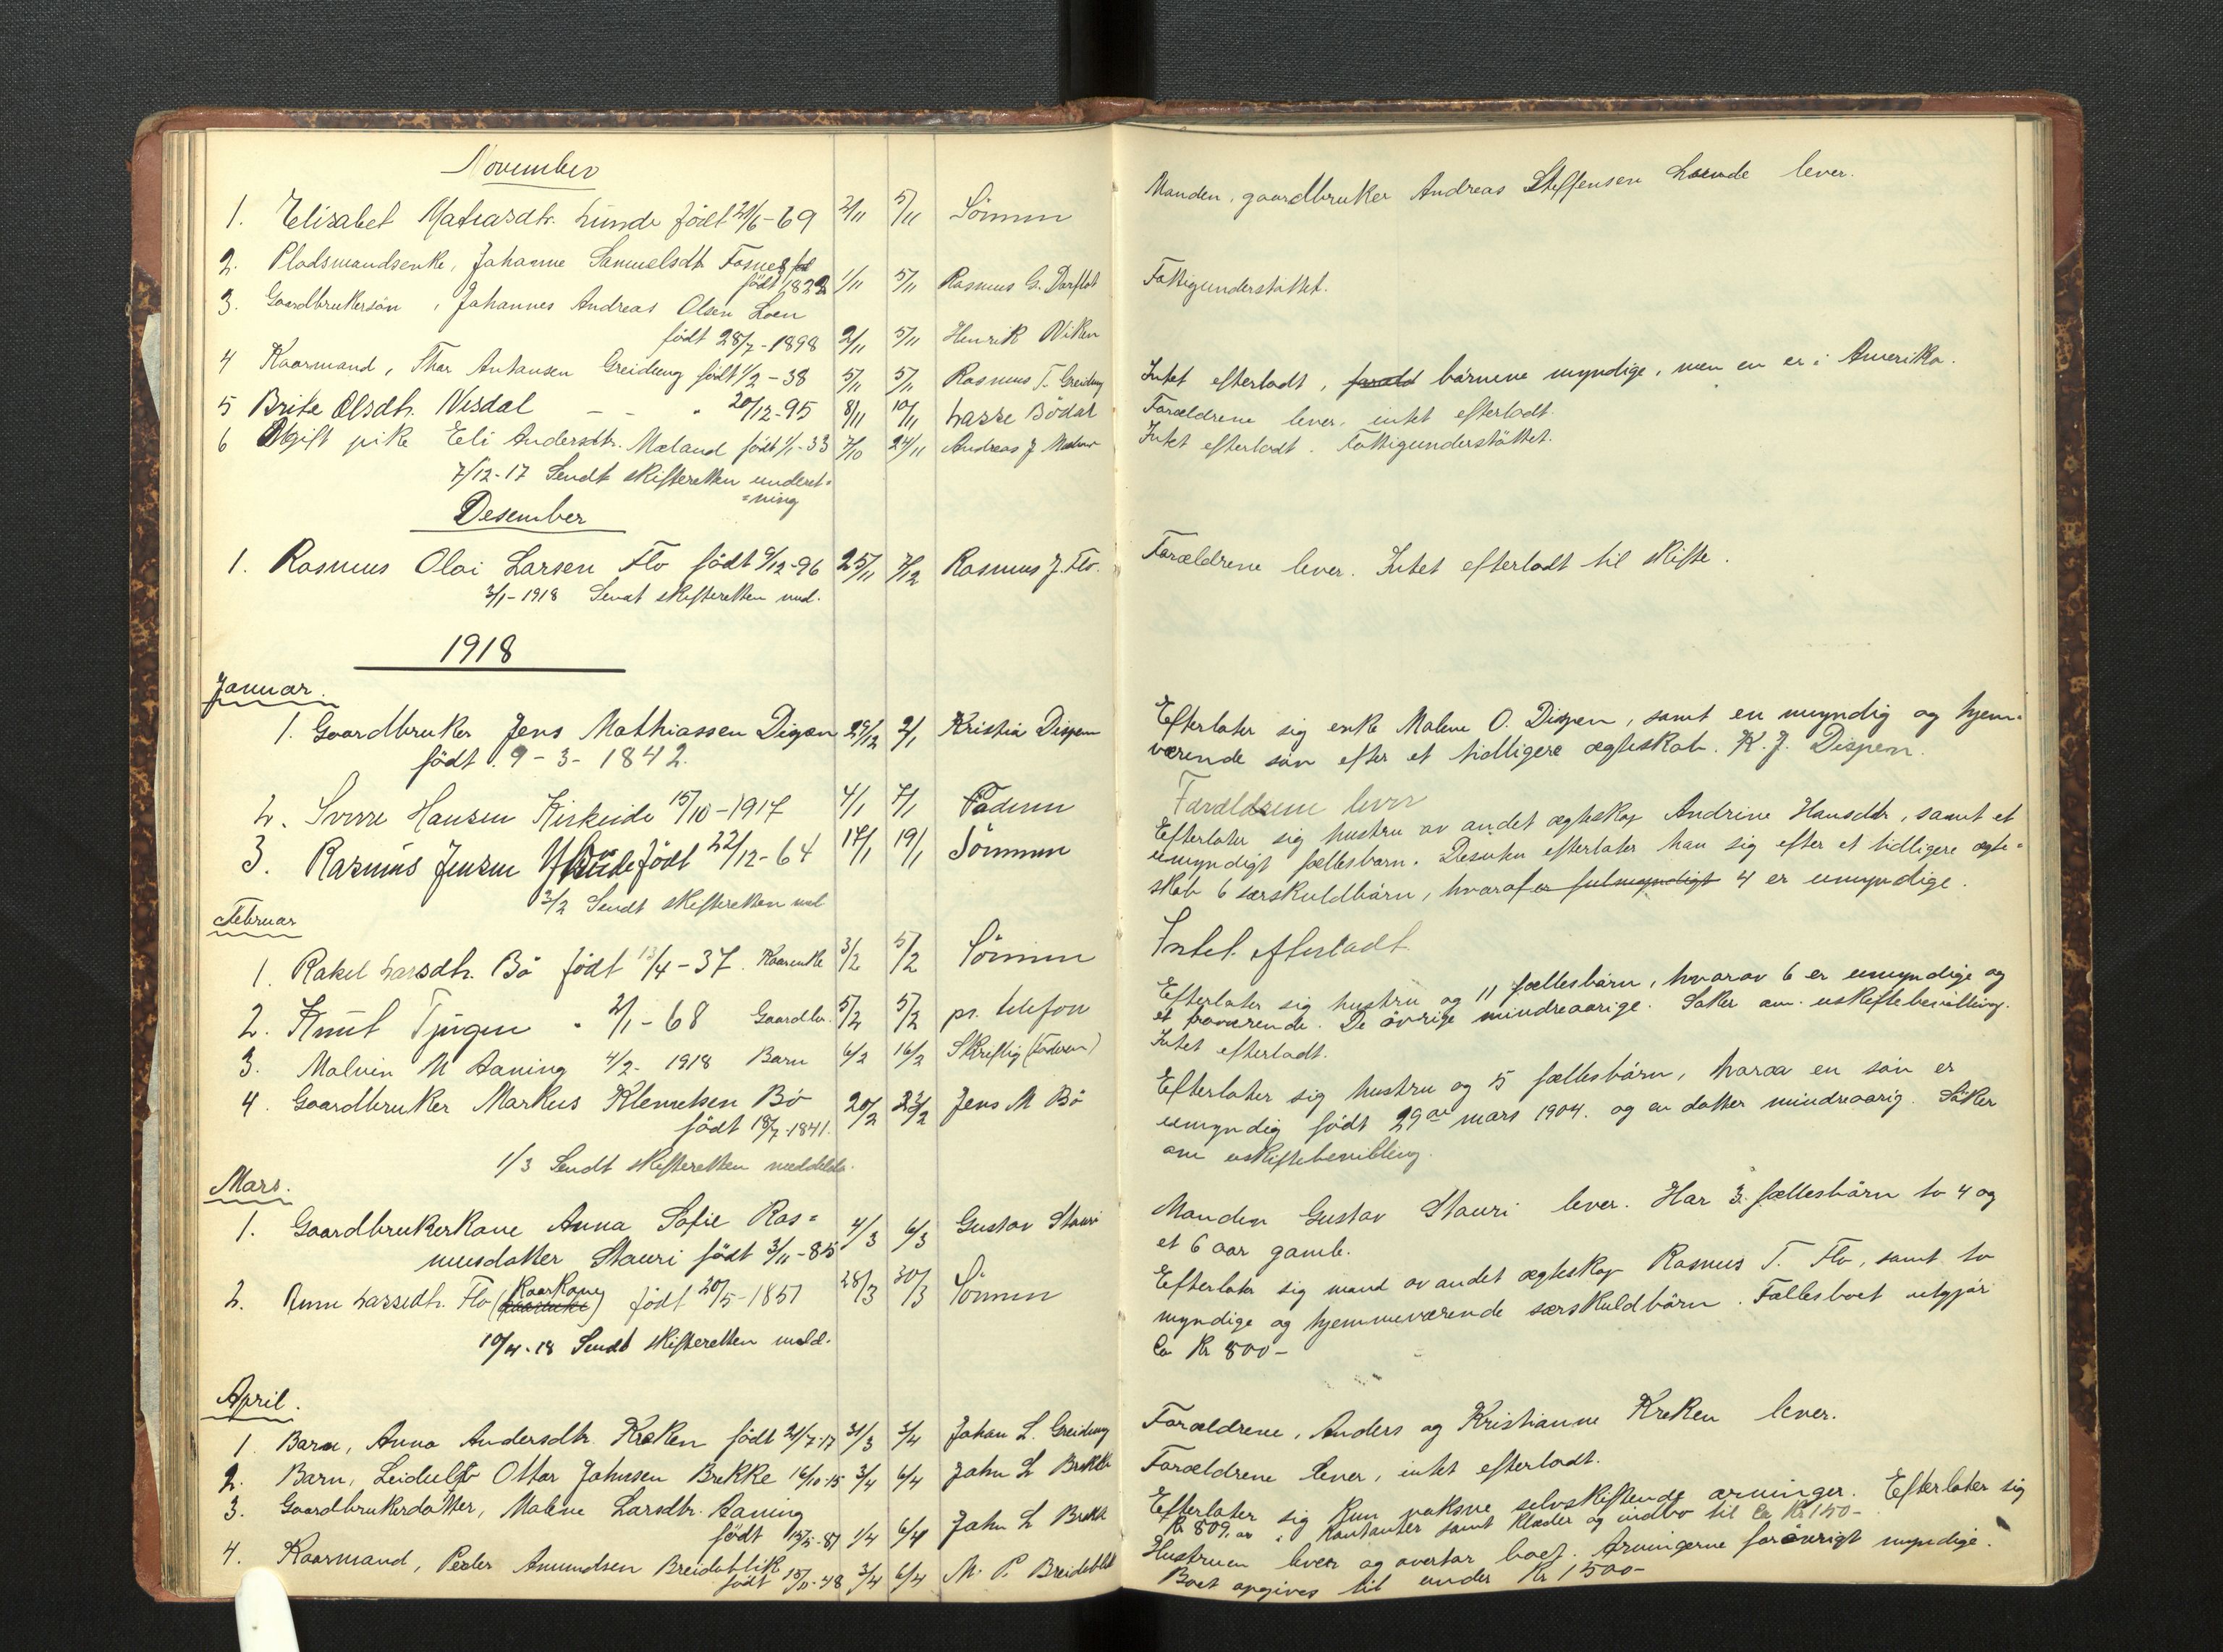 November
1. Elisabet Matiasdtr. Lunde födt 21/6-69 2/11 5/11 Sönnen
Manden, gaardbruker Andreas Steffensen Lunde lever.
2. Pladsmandsenke, Johanne Samuelsdtr Fosnes
födt 1822 1/11 5/11 Rasmus G. Darflot
Fattigunderstöttet.
3. Gaardbrukersön, Johannes Andreas Olsen Loen
födt 28/7-1898 2/11 5/11 Henrik Viken
4 Kaarmand, Thor Antonsen Greidung födt 1/2-38 5/11 5/11 Rasmus T. Greidung
Intet efterladt, börnene myndige, men en er i Amerika.
5 Brite Olsdtr. Nesdal — — " 20/12-95 8/11 10/11 Lasse Bödal
Forældrene lever, intet efterladt.
6 Ugift pike Eli Andersdtr. Mæland födt 1/1-33 7/10 24/11 Andreas J
Intet efterladt. Fattigunderstöttet.
7/12-17 Sendt skifteretten underet-
=ning
Desember
1. Rasmus Olai Larsen Flo födt 9/12-96 25/11 7/12 Rasmus J. Flo.
Forældrene lever. Intet efterladt til skifte.
3/1-1918 Sendt skifteretten med.
1918
Januar.
1. Gaardbruker Jens Mathiassen 29/12 2/1 Kristia Dispen
födt 9-3-1842.
Efterlater sig enke Malene O. Dispen, samt en myndig og hjem-
værende sön efter et tidligere ægteskab. K. J. Dispen.
2. Sverre Hansen Kirkeide 15/10-1917 4/1 7/1 Faderen
Forældrene lever
3. Rasmus Jensen födt 22/12-64 17/1 19/1 Sönnen
Efterlater sig hustru av andet ægteskap Andrine Hansdtr, samt et
umyndigt fællesbarn. Desuten efterlater han sig efter et tidligere ægte-
skab 6 særskuldbörn, hvoraf er fulmyndigt 4 er umyndige.
2/2 Sendt skifteretten med
Februar
1. Rakel Larsdtr. Bö födt 13/4-37. Kaarenke 3/2 5/2 Sönnen
Intet efterladt.
2. Knut Tjugen " 2/1-68 Gaardbr. 5/2 5/2 pr. telefon
Efterlater sig hustru og 11 fællesbörn, hvorav 6 er umyndige og
et fraværende. De övrige mindreaarige. Söker om uskiftebevilling.
3. Malvin M Aaning 4/2-1918 Barn 6/2 16/2 Skriftlig (Faderen)
Intet efterladt.
4. Gaardbruker Markus Klemetsen Bö 20/2 23/2 Jens M Bö
födt 18/7-1841.
Efterlater sig hustru og 5 fællesbörn, en sön er
umyndig födt 29de mars 1904. og en datter mindreaarig. Söker
om uskiftebevilling.
1/3 Sendt skifteretten meddelelse.
Mars.
1. Gaardbrukerkone Anna Sofie Ras=
musdatter Stauri födt 3/11-85 4/3 6/3 Gustav Stauri
Manden Gustav Stauri lever. Har 3 fællesbörn to 4 og
et 6 aar gamle.
2. Anne Lassedtr. Flo (Kaarkone) födt 20/5-1851 28/3 30/3 Sönnen
Efterlater sig mand av andet ægteskap Rasmus T. Flo, samt to
myndige og hjemmeværende særskuldbörn. Fællesboet utgjör
Ca Kr 800-
10/4-18 Sendt skifteretten meld.
April.
1. Barn, Anna Andersdtr. Kreken födt 21/7-17 31/3 3/4 Johan L. Greidung
Forældrene, Anders og Kristianne Kreken lever.
2. Barn, Leidulf Ottar Johnsen Brekke 16/10-15 3/4 6/4 John L Brekke
Forældrene lever, intet efterladt.
3. Gaardbrukerdatter, Malene Larsdtr. Aaning
födt 15/5-87 1/4 6/4 John L Brekke
Efterlater sig kun voksne selvskiftende arvinger. Efterlater sig
Kr 809.00 i kontanter samt klæder og indbo til Ca Kr 150-
4. Kaarmand, Peder Amundsen Breidablik
födt 15/11-48 3/4 6/4 M. P. Breidablik
Hustruen lever og overtar boet. Arvingerne forövrigt myndige.
Boet opgives til under Kr 1500-